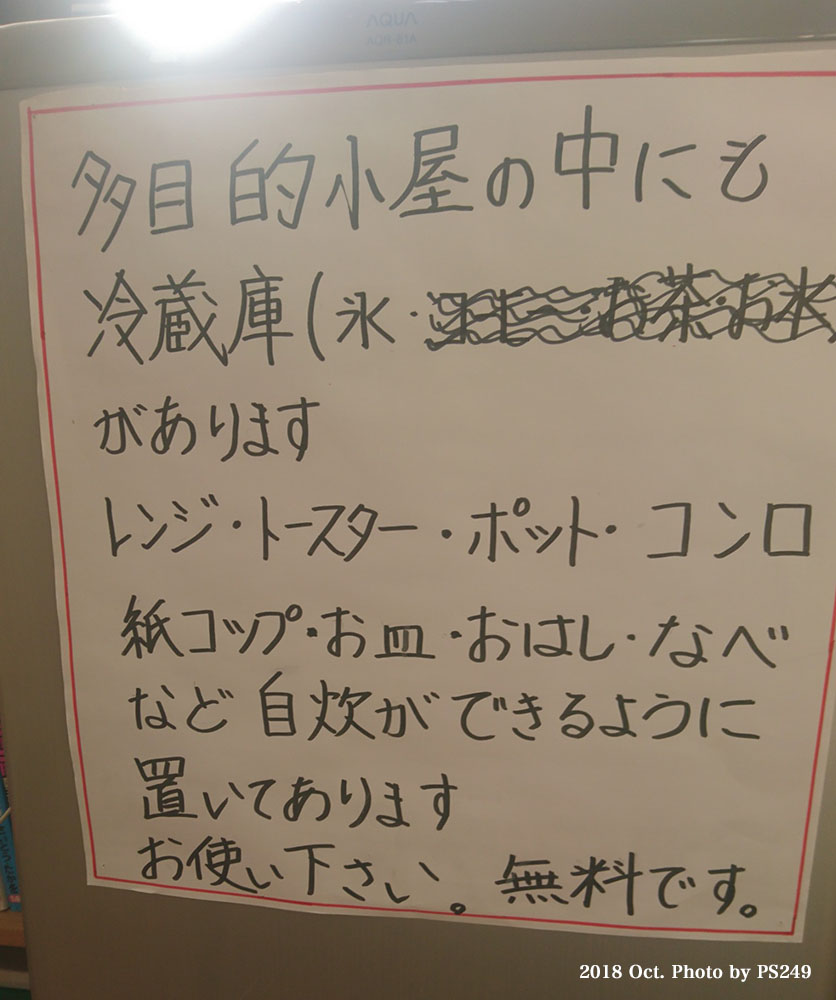 AQUA
AQR-81A
多目的小屋の中にも
冷蔵庫(氷・コーヒー・お茶・お水
があります
レンジ・トースター・ポット・コンロ
紙コップ・お皿・おはし・なべ
など自炊ができるように
置いてあります
お使い下さい。無料です。
2018 Oct. Photo by PS249